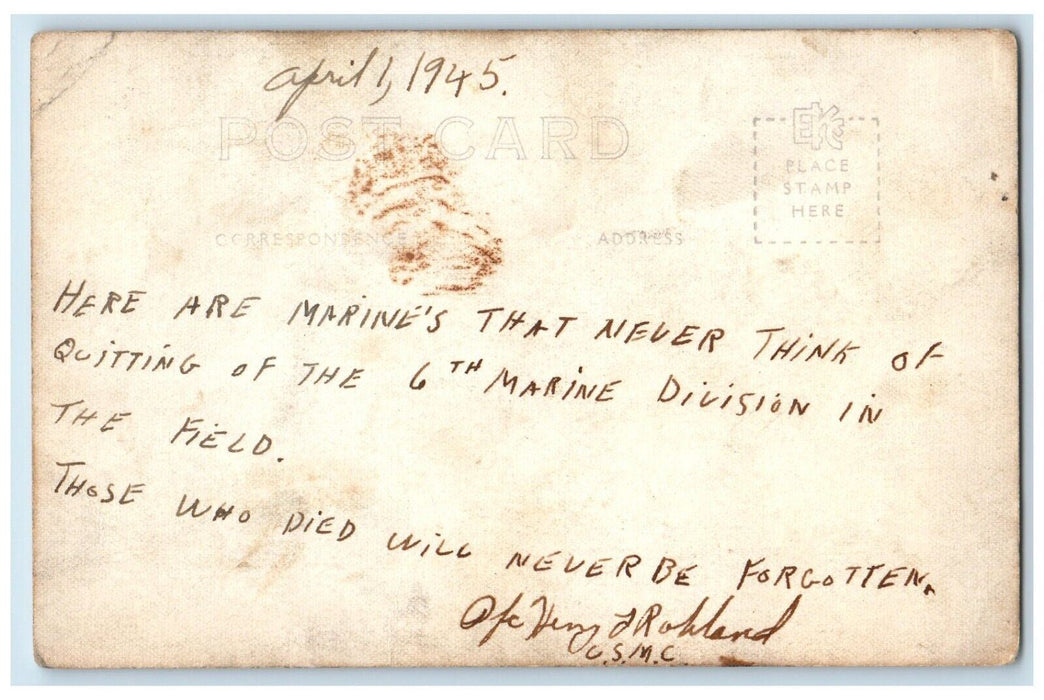 April 1, 1945.
POST CARD
EKC
PLACE
STAMP
HERE
CORRESPONDENCE
ADDRESS
HERE ARE MARINE'S THAT NEVER THINK OF
QUITTING OF THE 6TH MARINE DIVISION IN
THE FIELD.
THOSE WHO DIED WILL NEVER BE FORGOTTEN.
Pfc Henry
U.S.M.C.